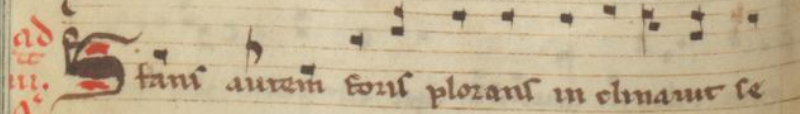 ad
Stans autem foris plorans in clinauit se